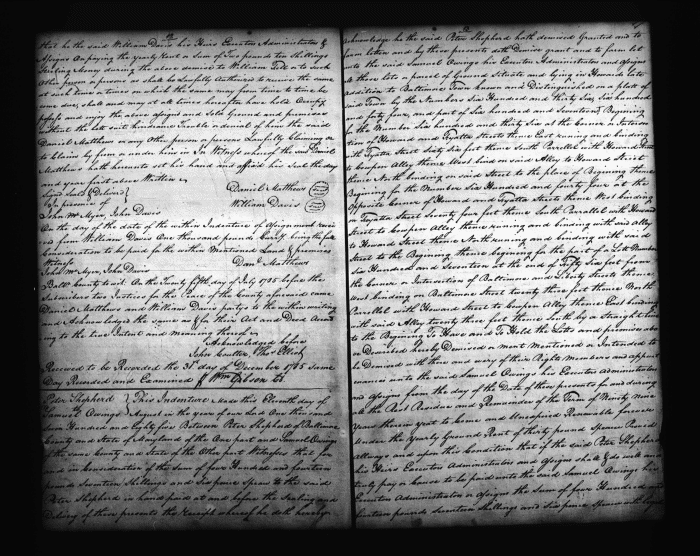 that he the said William Davis his Heirs Executors Administrators &
Assigns paying the yearly Rent a Sum of Two pounds ten Shillings
Sterling Money during the time aforesaid to William Fell or to such
Other person a person as shall be lawfully Authorized to receive the same
at such time a times on which the same may from time to time be
come due, shall and may at all times hereafter have hold Occupy
possess and enjoy the above assigned and Sold Ground and premises
without the lett suit hindrance Trouble a denial of him the said
Daniel Matthews or any Other person a persons Lawfully Claiming or
to Claim by from a under him In Witness whereof the said Daniel
Matthews hath hereunto set his hand and affixed his Seal the day
and year first above Written
Sign'd Seal'd & Deliver'd
In presence of
Daniel Matthews
William Davis
John McMyer, John Davis
On the day of the date of the within Indenture of Assignment receiv
ed from William Davis One thousand pounds Curr'y being the full
Consideration to be paid for the within Mentioned Land & premises
Witness
John McMyer, John Davis
Danl. Matthews
Balt County to wit. On the Twenty fifth day of July 1785 before the
Subscribers two Justices for the Peace of the County aforesaid came
Daniel Matthews and William Davis partys to the within writing
and Acknowledged the same as for their Act and Deed Accord
ing to the true Intent and meaning thereof
Acknowledged before
John Coulter, Thos Elliott
Received to be Recorded the 31st day of December 1785 Same
Day Recorded and Examined Wm Gibson Clk
Peter Shepherd
To
Samuel Owings
This Indenture Made this Eleventh day of
August in the year of our Lord One thousand seven
Hundred and Eighty five Between Peter Shepherd of Baltimore
County and State of Maryland of the One part and Samuel Owings
of the same County and State of the Other part Witnesseth that for
and in Consideration of the Sum of four Hundred and fourteen
pounds Seventeen Shillings and Six pence Specie to the said
Peter Shepherd in hand paid at and before the Sealing and
Delivery of these presents the Receipt whereof he doth hereby
Acknowledge he the said Peter Shepherd hath demised Granted and to
farm letten and by these presents doth Demise grant and to farm let
unto the said Samuel Owings his Executors Administrators and Assigns
those lots a parcel of Ground Situate and lying in Howards late
addition to Baltimore Town known and Distinguished on a platt of
said Town by the Numbers Six Hundred and thirty Six, Six hundred
and forty four, and part of Six hundred and Seventeen, Beginning
for the Number Six hundred and thirty Six at the Corner a Intersec
tion of Howard and Fayatta Streets thence East running and binding
with Fayatta Street Sixty Six feet thence South Parallel with Howard Street
to Cowpen Alley thence West bind on said Alley to Howard Street
thence North binding on said Street to the place of Beginning thence
Beginning for the Number Six Hundred and forty four at the
opposite Corner of Howard and Fayatta Streets thence West binding
on Fayatta Street Seventy four feet thence South Parallel with Howard
Street to Cowpen Alley thence running and binding with said Alley
to Howard Street thence North running and binding with said
Street to the Beginning thence beginning for the part of a Lott Number
Six Hundred and Seventeen at the end of fifty Six feet from
the Corner or Intersection of Baltimore and Liberty Streets thence
West binding on Baltimore Street twenty three feet thence North
Parallel with Howard Street to Cowpen Alley thence East binding
with said Alley twenty three feet thence South by a straight line
to the Beginning To Have and To Hold the Lots and premises above
Described hereby Demised a ment Mentioned or Intended to
be Demised with their and every of their Right Members and appurt
enances unto the said Samuel Owings his Executors Administrators
and Assigns from the day of the Date of these presents for and during
all the Rest Residue and Remainder of the Term of Ninety Nine
Years therein yet to come and Unexpired Renewable forever
Under the Yearly Ground Rent of thirty pound Specie
always and upon this Condition that if the said Peter Shepherd
his Heirs Executors Administrators and Assigns shall & do well and
truly pay or Cause to be paid unto the said Samuel Owings his
Executors Administrators or Assigns the Sum of four Hundred and
fourteen pounds Seventeen Shillings and Six pence Specie with